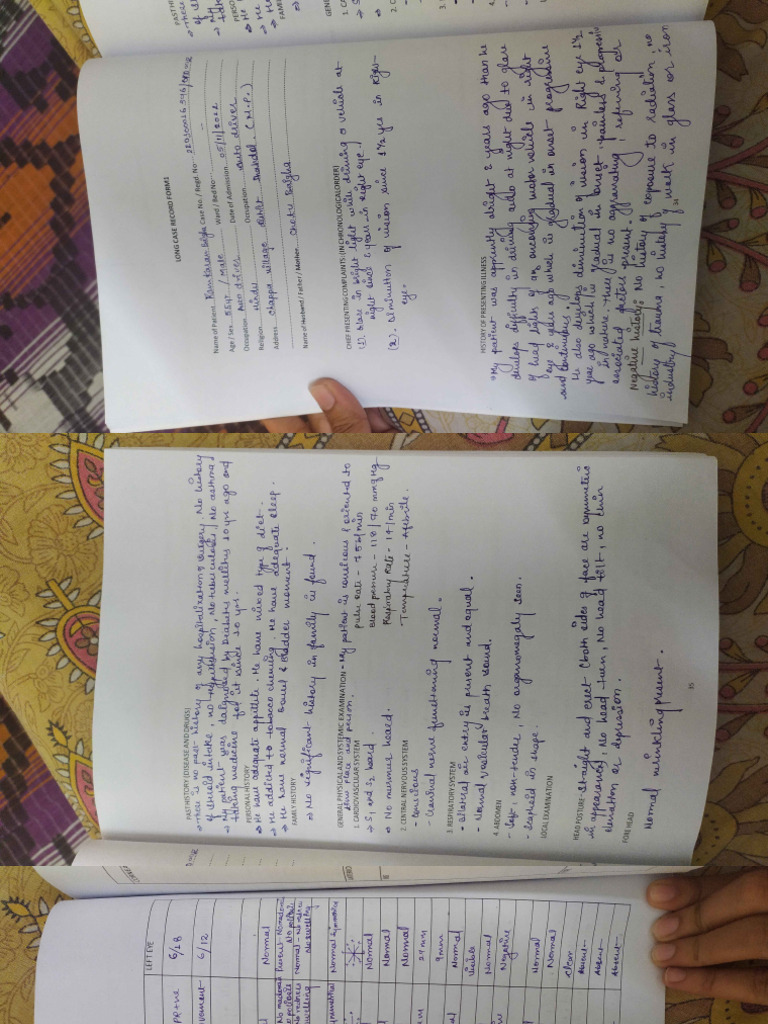 LONG CASE RECORD FORMS
Name of Patient Ramkaran Baiga Case No. / Regd. No.
Age / Sex 55yr / Male Ward / Bed No.
Occupation Auto driver Date of Admission 05/11/2022
Religion Hindu Occupation auto driver
Address chappa village distt Shahdol (M.P.)
Name of Husband / Father / Mother Chotu Baigha
CHIEF PRESENTING COMPLAINTS: (IN CHRONOLOGICAL ORDER)
(1). Glare in bright light while driving a vehicle at
night since 2 years in right eye.
(2). Diminution of vision since 1 1/2 yrs in Right
eye.
HISTORY OF PRESENTING ILLNESS
My patient was apparently alright 2 years ago than he
develops difficulty in driving auto at night due to glare
of head light of an oncoming motor vehicle in right
eye 2 years ago which is gradual in onset progressive
and continuous.
He also develops diminution of vision in Right eye 1 1/2
year ago which is gradual in onset, painless & progressive
in nature. There is no aggravating, referring or
associated factors present.
Negative history: No history of exposure to radiation, no
history of trauma, no history of work in glass or iron
industry
34
PAST HISTORY (DISEASE AND DRUGS)
→ There is no past history of any hospitalization & surgery. No history
of steroid intake, no hypertension, No tuberculosis, No asthma
→ My patient was daignosed by Diabetes mellitus 20 yrs ago and
taking medicine for it since 20 yrs.
PERSONAL HISTORY
→ He have adequate appitite. He have mixed type of diet.
→ He addicted to tobacco chewing. He have adequate sleep.
→ He have normal bowel & bladder moment.
FAMILY HISTORY
→ No significant history in family is found.
GENERAL PHYSICAL AND SYSTEMIC EXAMINATION • My patient is conscious & oriented to
time place and person.
1. CARDIOVASCULAR SYSTEM
Pulse Rate - 78 b/min
→ S1 and S2 heard.
Blood pressure - 118/90 mmHg
• No murmur heard.
Respiratory Rate - 17/min
2. CENTRAL NERVOUS SYSTEM
- Temperature - Afebrile.
- conscious
- Cranial nerve functioning normal.
3. RESPIRATORY SYSTEM
• Bilateral air entry is present and equal.
- Normal vesicular breath sound.
4. ABDOMEN
- Soft, non-tender, No organomegaly seen.
- Scaphoid in shape.
LOCAL EXAMINATION
HEAD POSTURE - Straight and erect (both sides of face are symmetric
in appearance), No head turn, No head tilt, no chin
elevation or depression.
FORE HEAD
Normal wrinkling present.
35
LEFT EYE
PR+ve 6/18
6/12
Normal
Normal
Normal
Normal
Normal
24mm
9mm
Normal
Visible
Normal
Negative
Normal
Normal
Clear
Absent
Absent
Absent